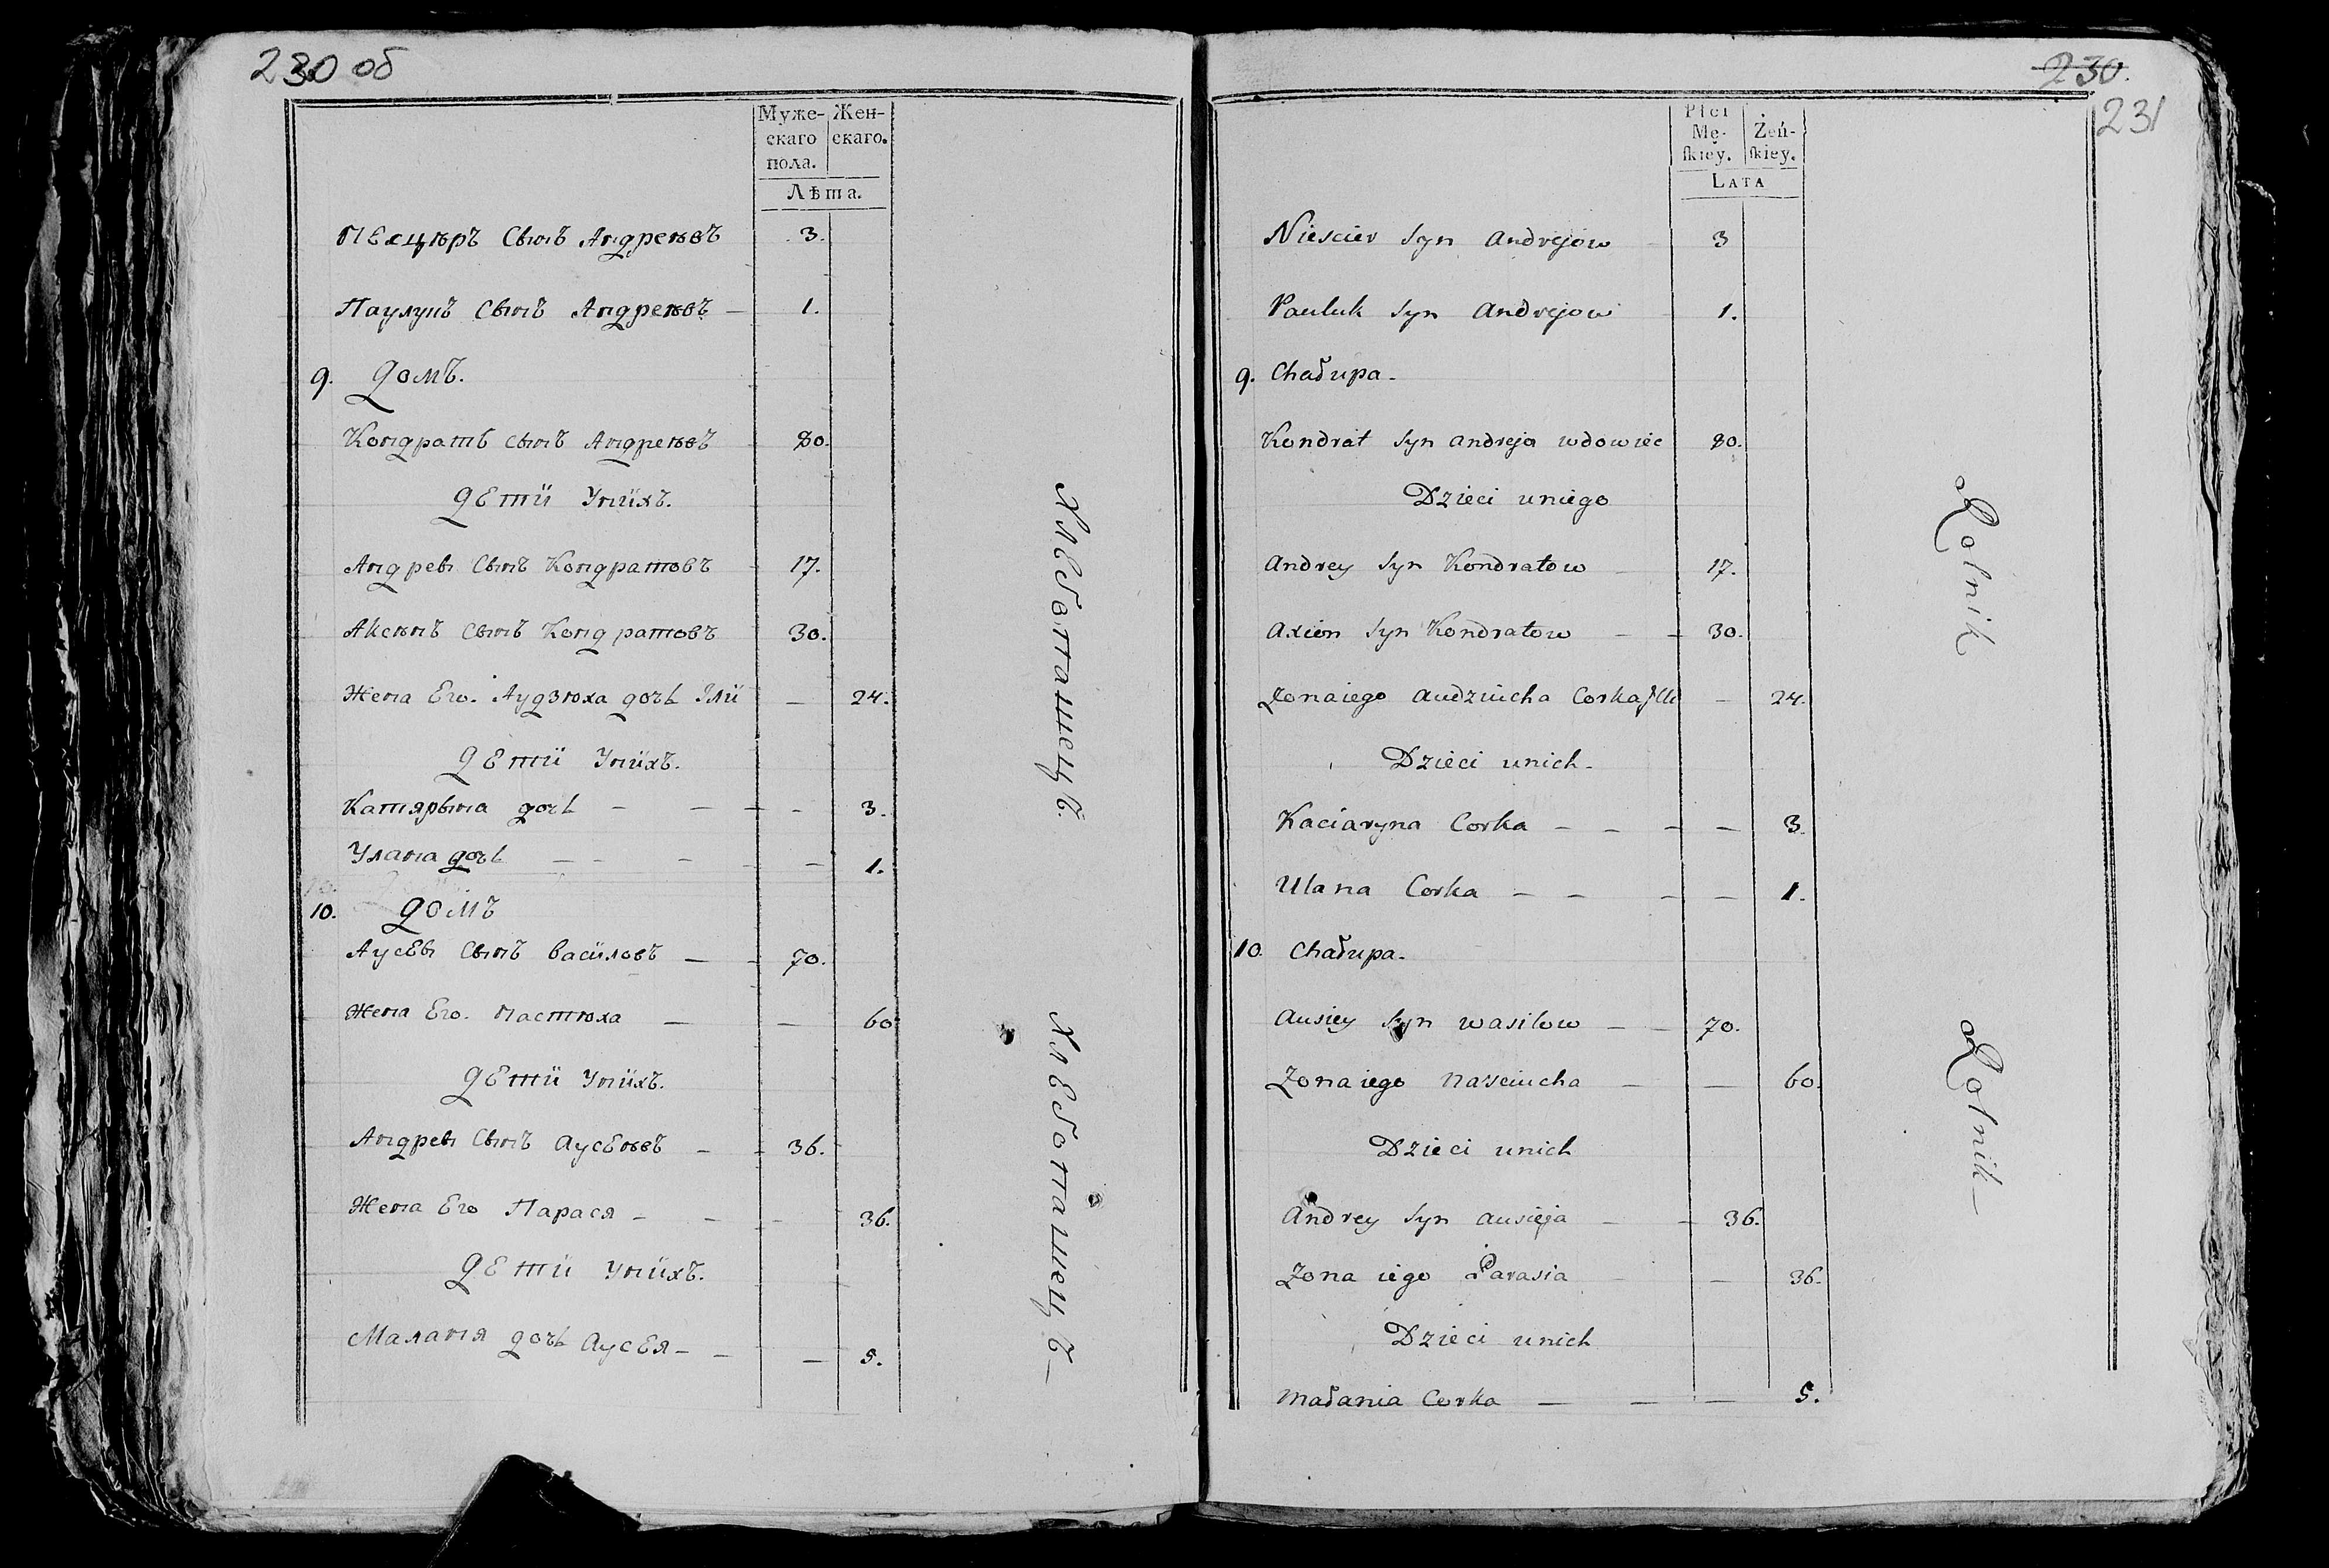 230 об
Муже-
скаго
пола.
Жен-
скаго.
Лѣта.
Несцѣръ Сынъ Андреювъ 3.
Паулукъ Сынъ Андреювъ — 1.
9. Домъ.
Кондратъ Сынъ Андреювъ 80.
Дети Унихъ.
Андрей Сынъ Кондратовъ 17.
Аксюнъ Сынъ Кондратовъ 30.
Жена Его. Аудзюха дочь Или — 24.
Дети Унихъ.
Катярына дочь — — — - 3.
Улана дочь — - - - — 1.
10. Домъ
Аусей Сынъ Василовъ — - 70.
Жена Его. Настюха — — 60
Дети Унихъ.
Андрей Сынъ Аусеювъ - - 36.
Жена Его Парася - - - 36.
Дети Унихъ.
Малания дочь Аусея - - — 5.
Хлебопашецъ.
Хлебопашецъ —
230.
231
Płci
Mę-
ſkiey.
Żeń-
ſkiey.
Lata
Niescier Syn Andrejow 3
Pauluk Syn Andrejow 1.
9. Chałupa.
Kondrat Syn Andreja wdowiec 80.
Dzieci uniego
Andrey Syn Kondratow — 17.
Axion Syn Kondratow — - 30.
Zona iego Audziucha Corka — 24.
Dzieci unich.
Kaciaryna Corka — - — — 3.
Ulana Corka — - - — 1.
10. Chałupa.
Ausiey Syn Wasilow — - 70.
Zona iego Nasciucha — — 60.
Dzieci unich
Andrey Syn Ausieja — - 36.
Zona iego Parasia — 36.
Dzieci unich
Małania Corka — — — 5.
Rolnik
Rolnik —